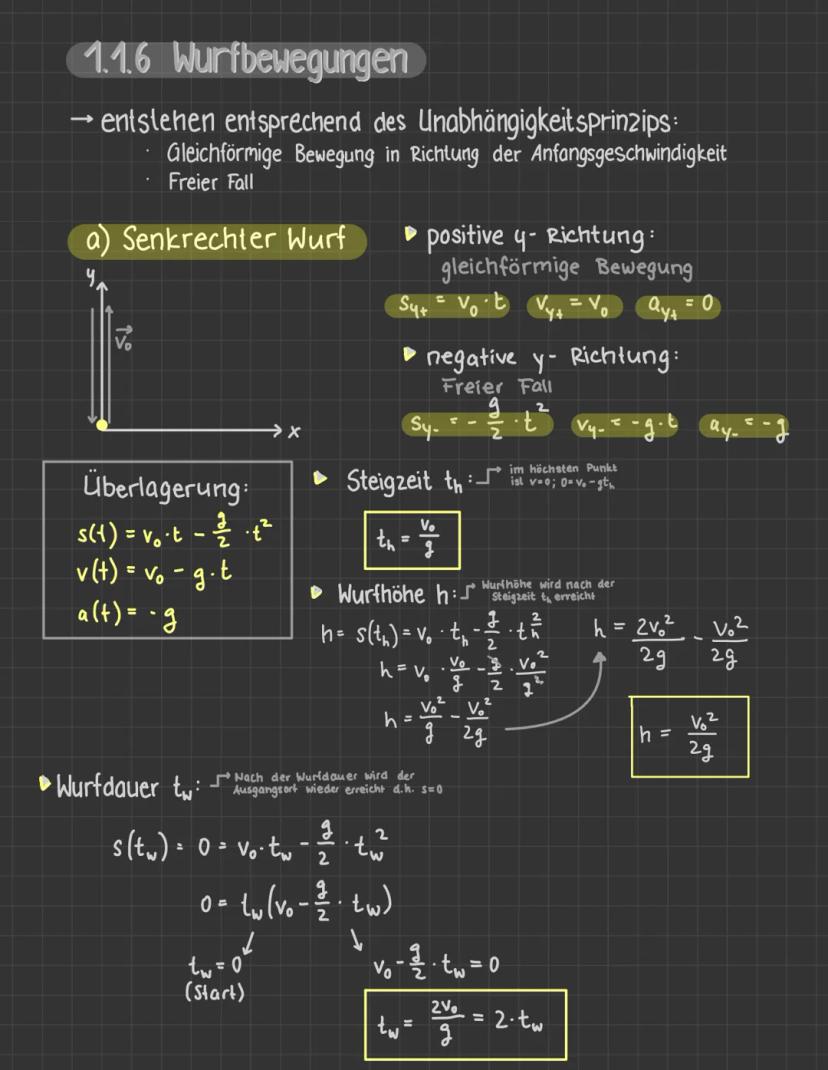 1.1.6 Wurfbewegungen
→ entstehen entsprechend des Unabhängigkeitsprinzips:
· Gleichförmige Bewegung in Richtung der Anfangsgeschwindigkeit
· Freier Fall
a) Senkrechter Wurf
y
v₀
x
positive y- Richtung:
gleichförmige Bewegung
s_y+ = v₀ · t   v_y+ = v₀   a_y+ = 0
negative y- Richtung:
Freier Fall
s_y- = - g/2 · t²   v_y- = -g·t   a_y- = -g
Überlagerung:
s(t) = v₀·t - g/2 · t²
v(t) = v₀ - g·t
a(t) = -g
Steigzeit t_h: im höchsten Punkt
ist v=0; 0=v₀-gt_h
t_h = v₀/g
Wurfhöhe h: Wurfhöhe wird nach der
Steigzeit t_h erreicht
h = s(t_h) = v₀ · t_h - g/2 · t_h²
h = v₀ · v₀/g - g/2 · v₀²/g²
h = v₀²/g - v₀²/2g
h = 2v₀²/2g - v₀²/2g
h = v₀²/2g
Wurfdauer t_w: Nach der Wurfdauer wird der
Ausgangsort wieder erreicht d.h. s=0
s(t_w) = 0 = v₀·t_w - g/2 · t_w²
0 = t_w(v₀ - g/2 · t_w)
t_w = 0
(Start)
v₀ - g/2 · t_w = 0
t_w = 2v₀/g = 2·t_w